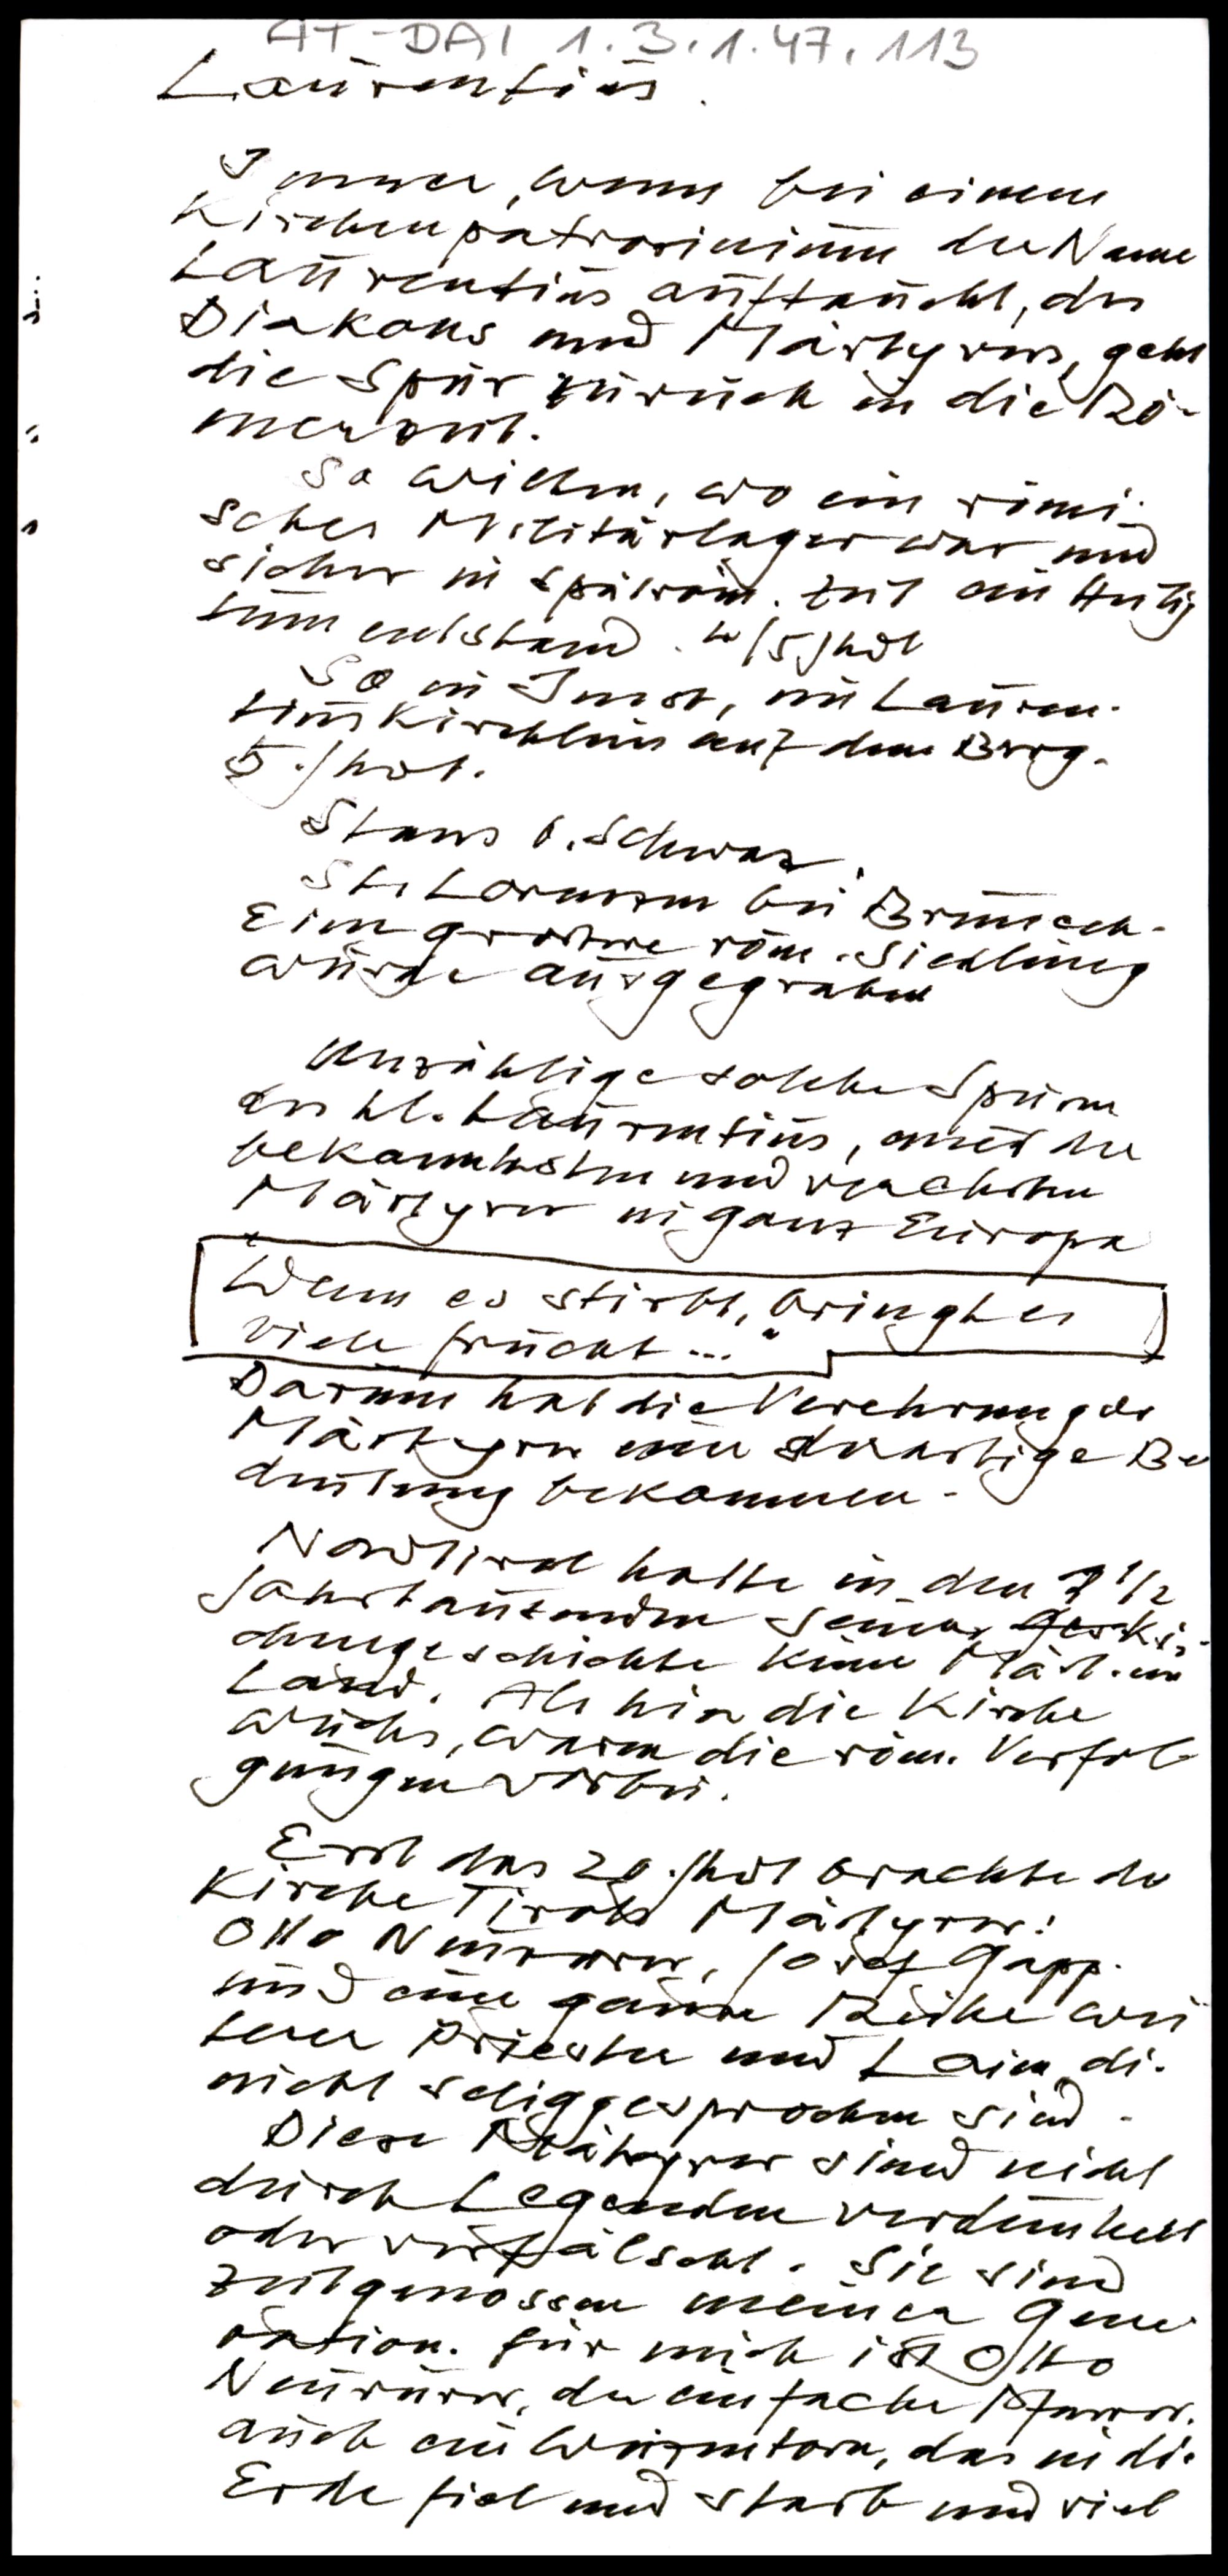 AT-DAI 1.3.1.47.113
Laurentius.
Immer, wenn bei einem
Kirchenpatrozinium der Name
Laurentius auftaucht, des
Diakons und Märtyrers, geht
die Spur zurück in die Rö-
merzeit.
So Wilten, wo ein römi-
sches Militärlager war und
sicher in spätröm. Zeit ein Heilig
tum entstand. 4/5 Jhdt
So in Imst, im Lauren-
tiuskirchlein auf dem Berg.
5. Jhdt.
Stans b. Schwaz.
St. Lorenzen bei Bruneck.
Eine grosse röm. Siedlung
wurde ausgegraben
Unzählige solche Spuren
des hl. Laurentius, einer der
bekanntesten und verehrten
Märtyrer in ganz Europa
Wenn es stirbt, bringt es
viele Frucht..."
Darum hat die Verehrung der
Märtyrer eine derartige Be
deutung bekommen.
Nordtirol hatte in den 1 1/2
Jahrtausenden seiner Ki-
chengeschichte keine Märt. im
Land. Als hier die Kirche
wuchs, waren die röm. Verfol
gungen vorbei.
Erst das 20. Jhdt brachte der
Kirche Tirols Märtyrer:
Otto Neururer, Josef Gapp.
und eine ganze Reihe wei
terer Priester und Laien, die
nicht seliggesprochen sind.
Diese Märtyrer sind nicht
durch Legenden verdunkelt
oder verfälscht. Sie sind
Zeitgenossen meiner Gene
ration. Für mich ist Otto
Neururer, der einfache Pfarrer,
auch ein Weizenkorn, das in die
Erde fiel und starb und viel